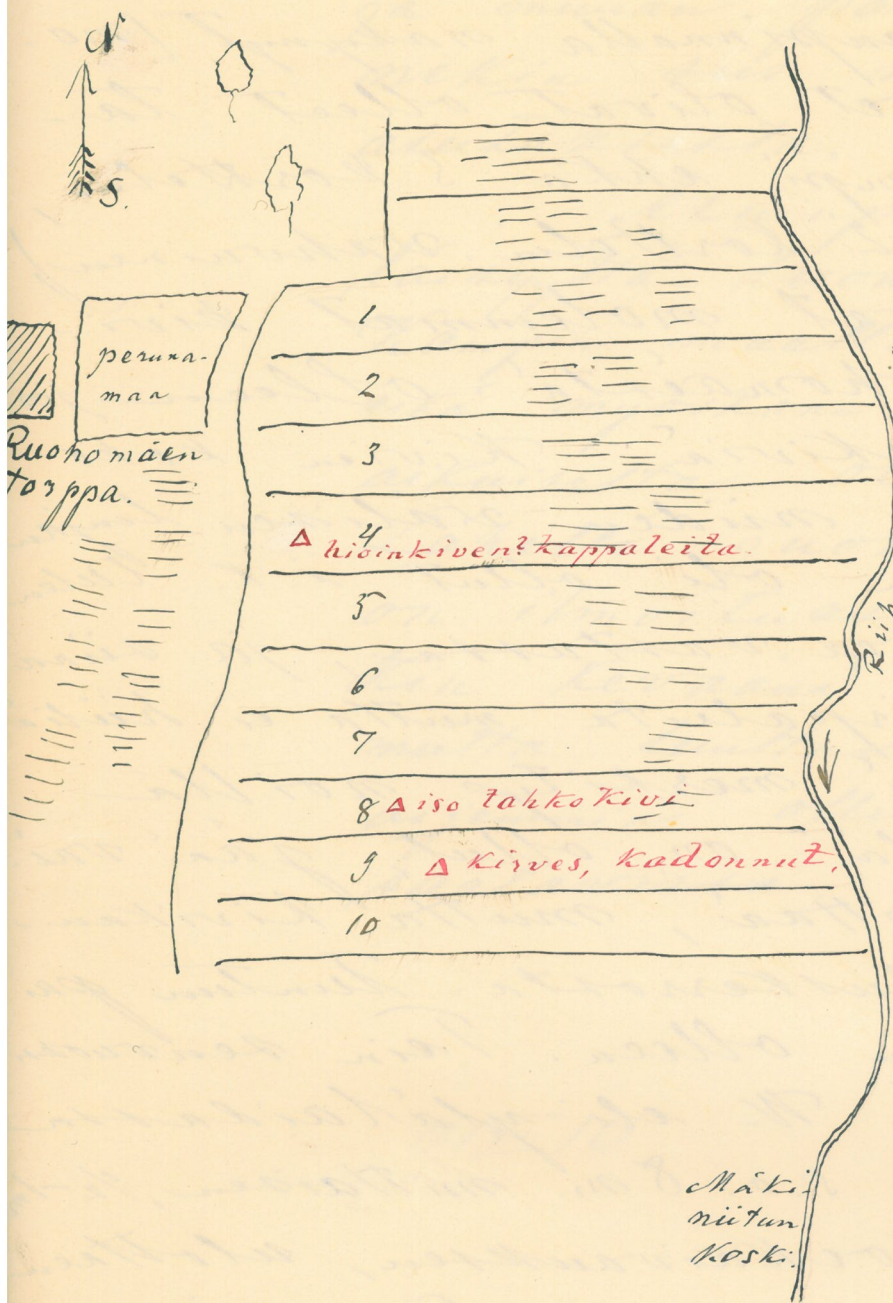 N
S.
1
peruna-
maa
2
Ruohomäen
torppa.
3
4
hioinkiven? kappaleita.
5
6
7
8 iso tahkokivi
9 kirves, kadonnut.
10
Mäki-
niitun
Koski.